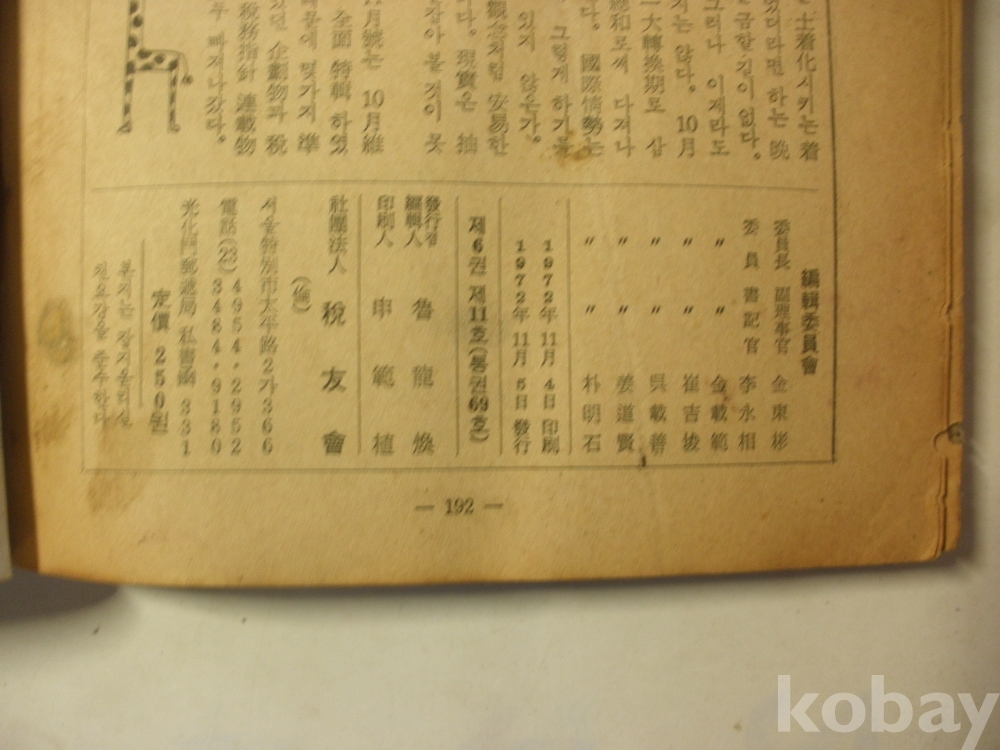 士着化시키는 着
었더라면 하는 晩
금할 길이 없다.
그러나 이제라도
지는 않다. 10月
一大轉換期로 삼
總和로써 다져나
다. 國際情勢는
그렇게 하기를
있지 않은가.
觀念처럼 安易한
다. 現實은 抽
잡아 볼 것이 못
月號는 10月維
全面 特輯 하였
때문에 몇가지 準
있던 企劃物과 稅
稅務指針 連載物
두 빠져나갔다.
編輯委員會
委員長 副理事官 金東彬
委員 書記官 李永相
〃 〃 金載範
〃 〃 崔吉埈
〃 〃 吳載善
〃 〃 姜道賢
〃 〃 朴明石
1972年 11月 4日 印刷
1972年 11月 5日 發行
제6권 제11호(통권69호)
發行겸
編輯人 魯龍煥
印刷人 申範植
社團法人 稅友會
서울特別市太平路2가366
電話(23) 4954·2952
3484·9180
光化門郵遞局 私書函 331
定價 250원
본지는 잡지윤리실
천요강을 준수한다
— 192 —
kobay